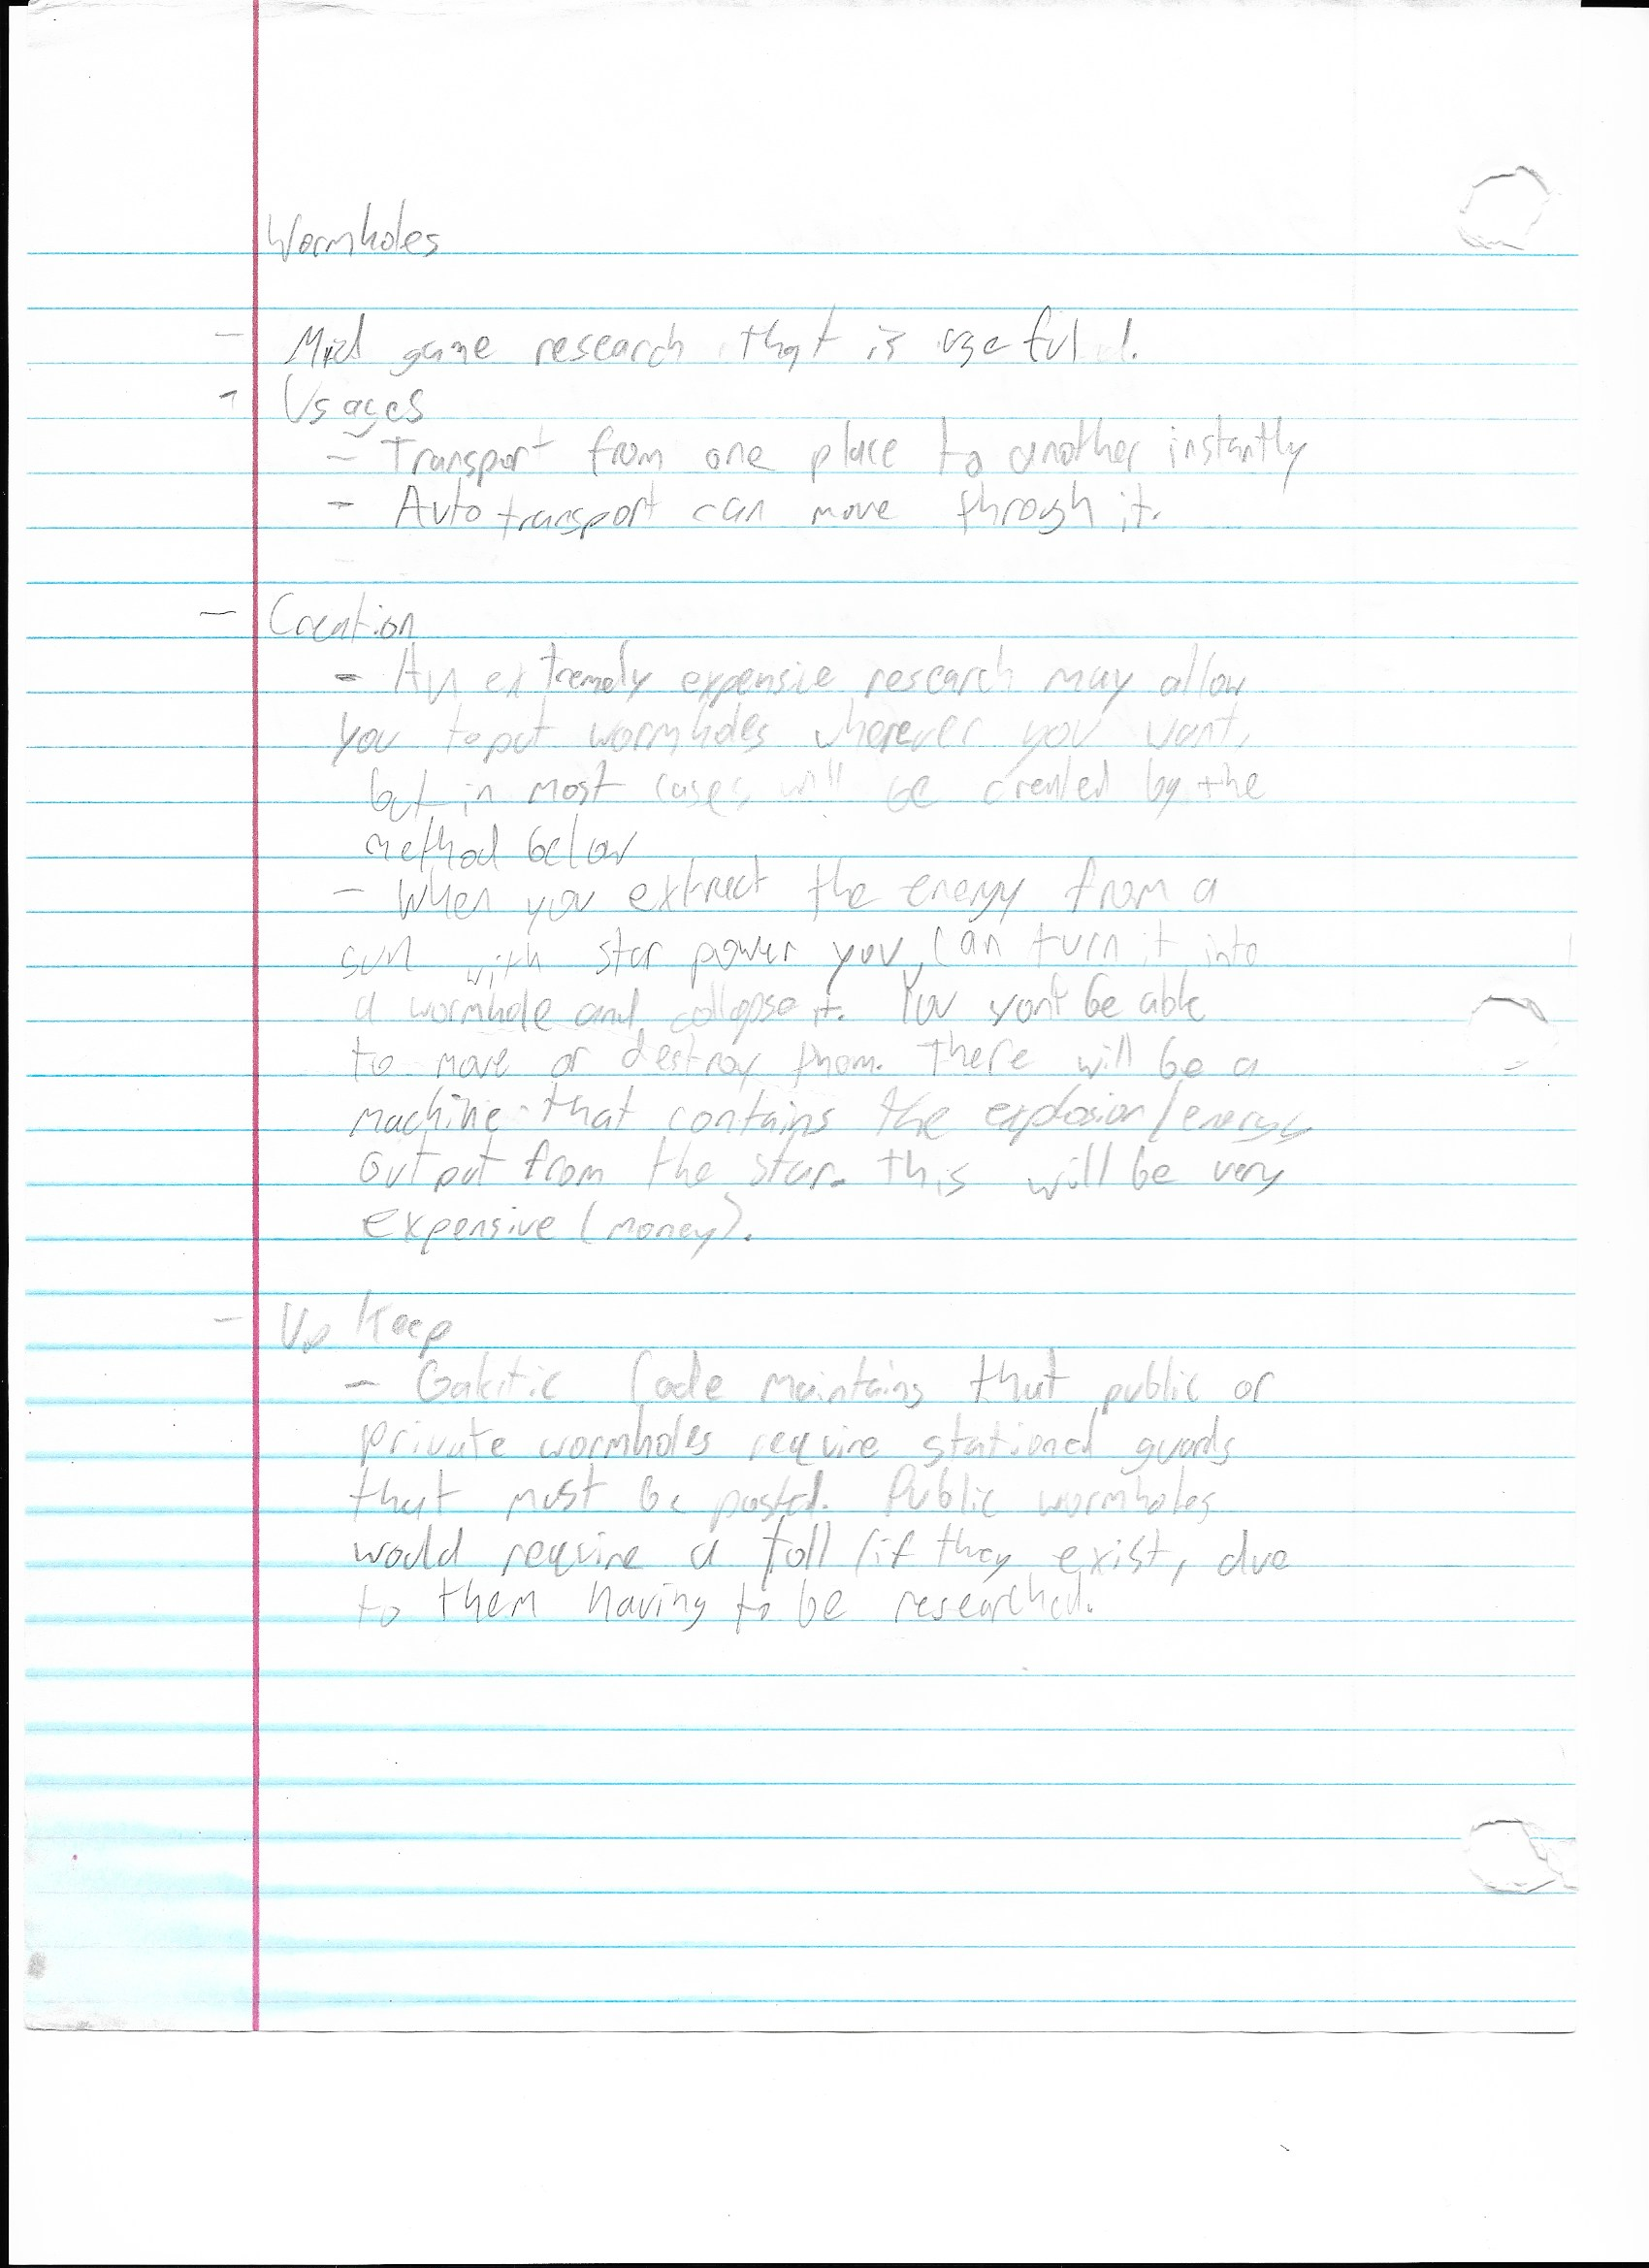 Wormholes
- Mid game research that is useful.
- Usages
- Transport from one place to another instantly
- Auto transport can move through it.
- Creation
- An extremely expensive research may allow
you to put wormholes wherever you want,
but in most cases will be created by the
method below
- When you extract the energy from a
sun with star power you can turn it into
a wormhole and collapse it. You won't be able
to move or destroy them. There will be a
machine that contains the explosion/energy
output from the star. This will be very
expensive (money).
- Up Keep
- Galcitic Code maintains that public or
private wormholes require stationed guards
that must be posted. Public wormholes
would require a toll (if they exist, due
to them having to be researched.